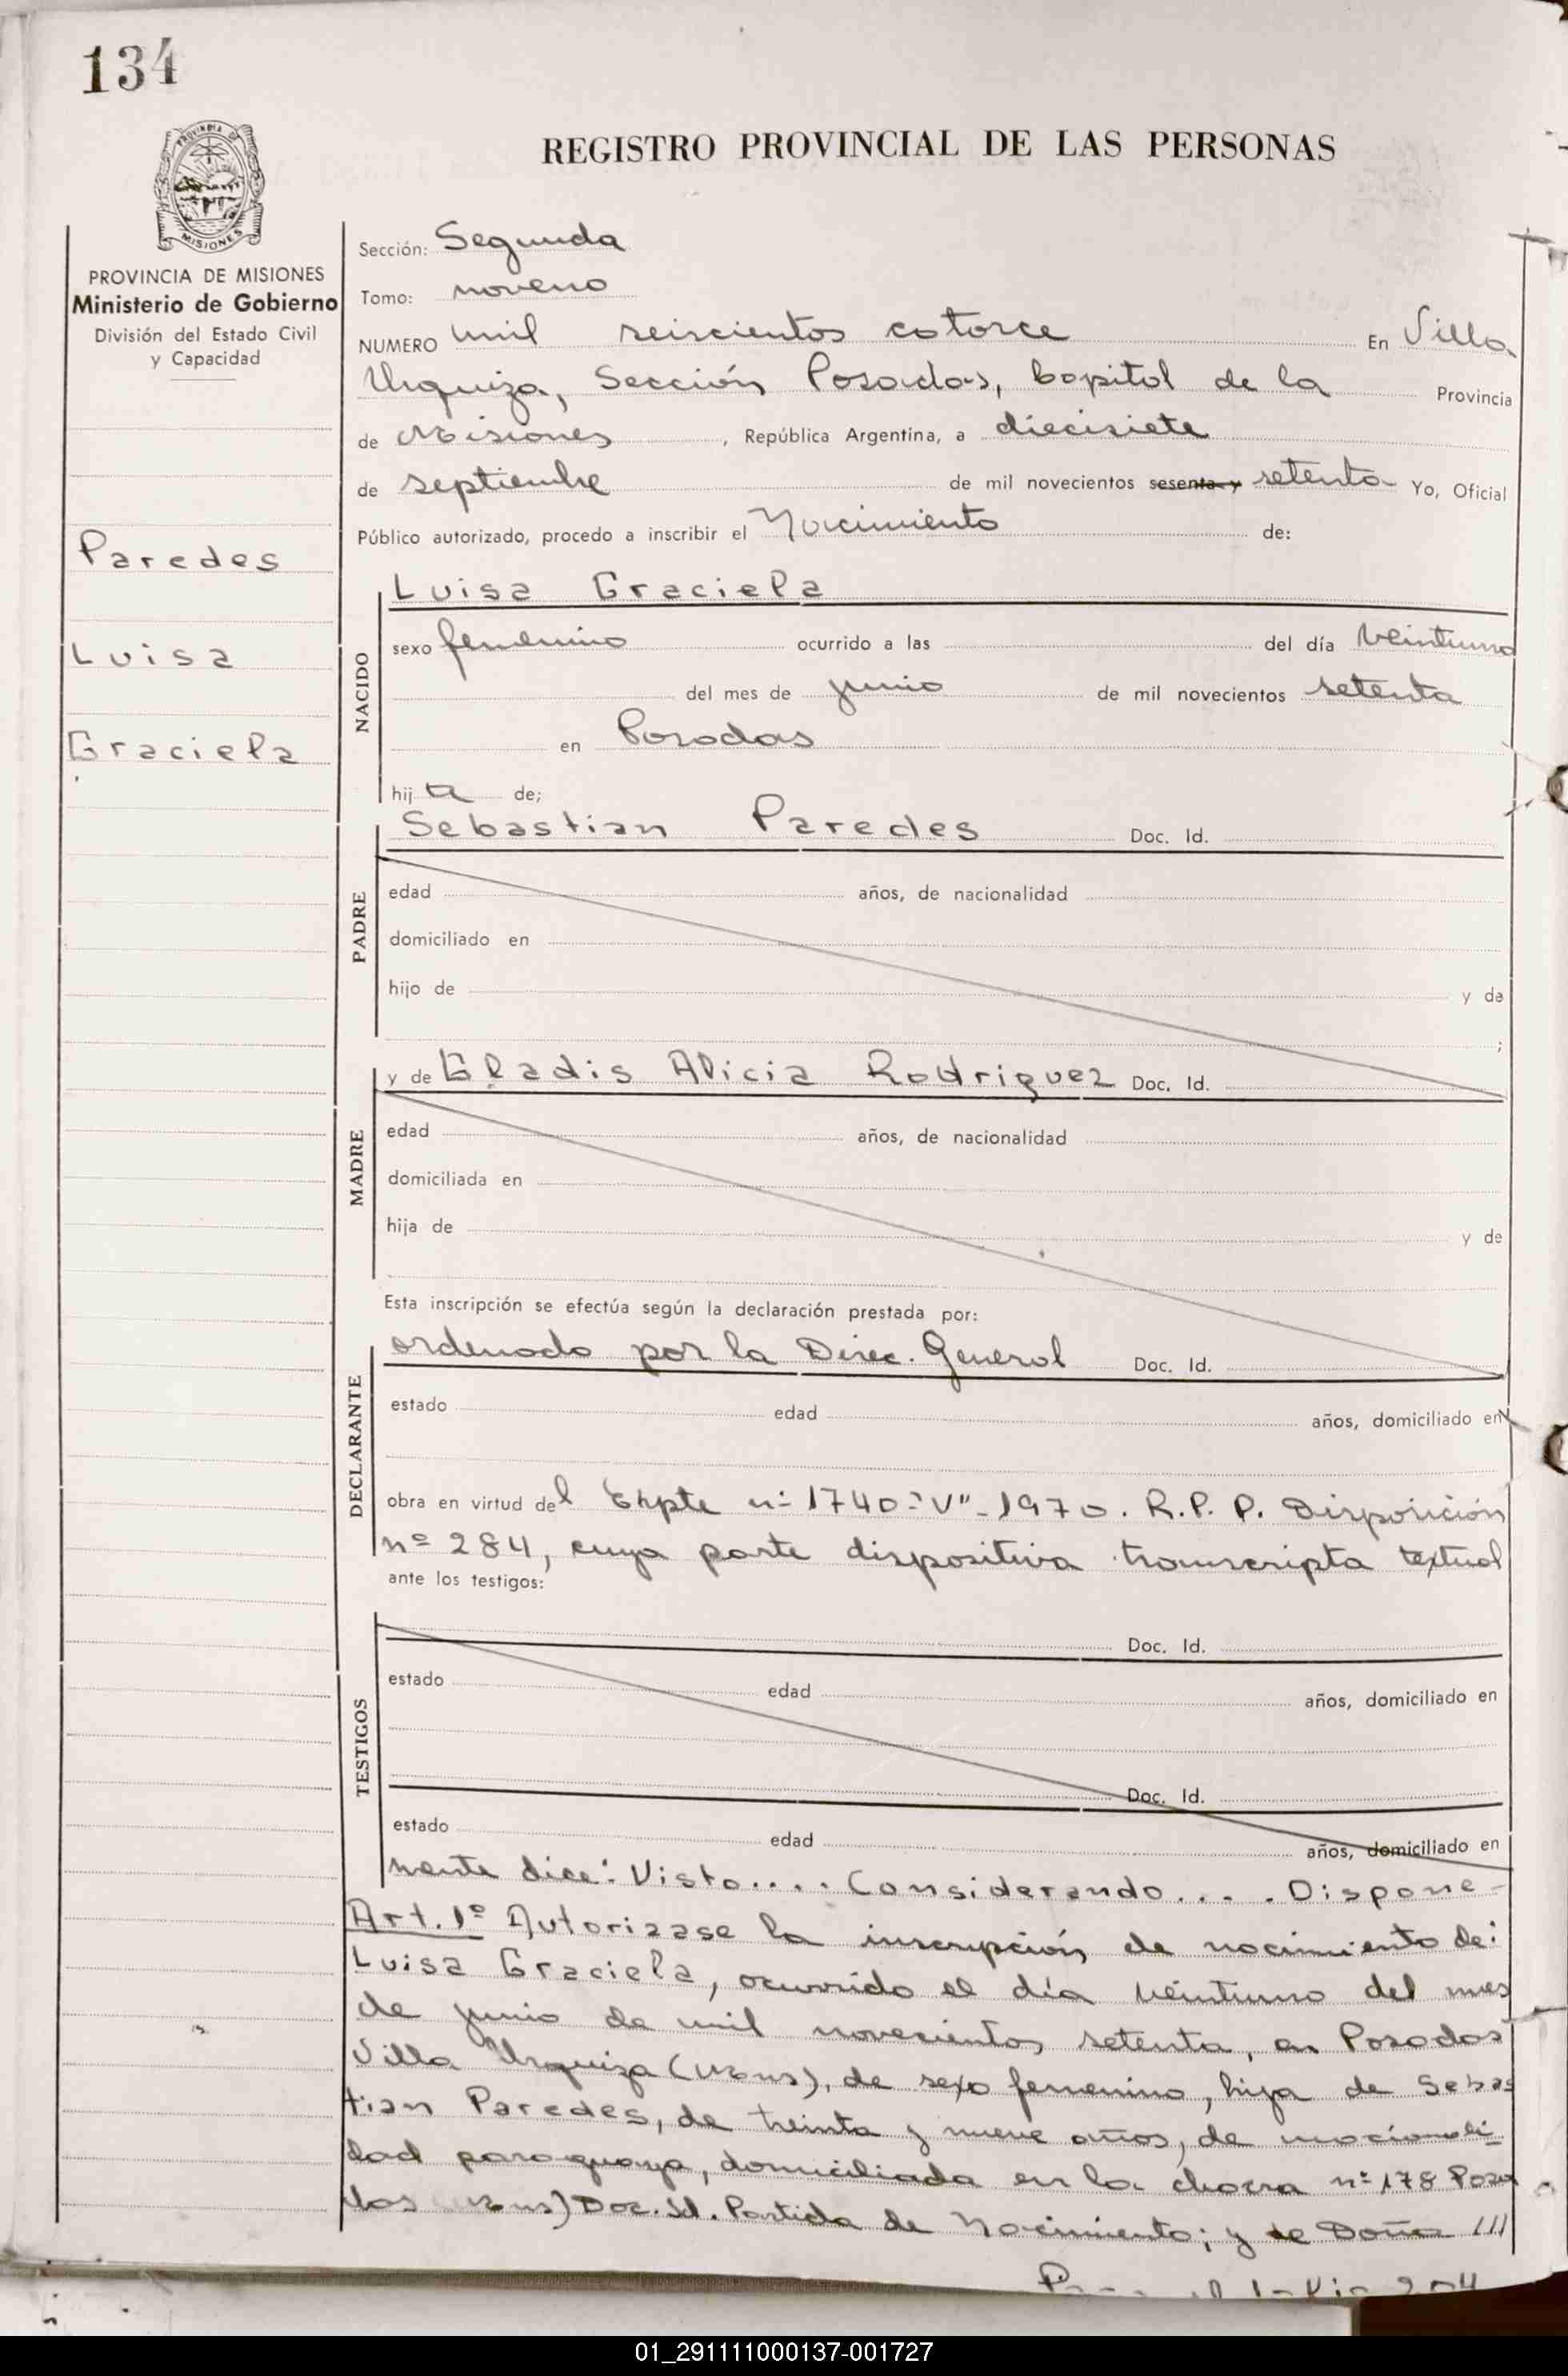 134
PROVINCIA DE
MISIONES
REGISTRO PROVINCIAL DE LAS PERSONAS
PROVINCIA DE MISIONES
Ministerio de Gobierno
División del Estado Civil
y Capacidad
Paredes
Luisa
Graciela
Sección: Segunda
Tomo: noveno
NUMERO mil seiscientos catorce En Villa
Urquiza, Sección Posadas, Capital de la Provincia
de Misiones, República Argentina, a diecisiete
de septiembre de mil novecientos sesenta y setenta Yo, Oficial
Público autorizado, procedo a inscribir el Nacimiento de:
NACIDO
Luisa Graciela
sexo femenino ocurrido a las del día veintiuno
del mes de junio de mil novecientos setenta
en Posadas
hija de;
PADRE
Sebastian Paredes Doc. Id.
edad años, de nacionalidad
domiciliado en
hijo de y de
;
MADRE
y de Gladis Alicia Rodriguez Doc. Id.
edad años, de nacionalidad
domiciliada en
hija de y de
Esta inscripción se efectúa según la declaración prestada por:
DECLARANTE
ordenado por la Direc. General Doc. Id.
estado edad años, domiciliado en
obra en virtud del Expte nº 1740-"V"-1970. R.P.P. Disposición
nº 284, cuya parte dispositiva transcripta textual
ante los testigos:
TESTIGOS
Doc. Id.
estado edad años, domiciliado en
Doc. Id.
estado edad años, domiciliado en
mente dice: Visto.... Considerando.... Dispone-
Art. 1º Autorizase la inscripción de nacimiento de:
Luisa Graciela, ocurrido el día veintiuno del mes
de junio de mil novecientos setenta, en Posadas
Villa Urquiza (Mnes), de sexo femenino, hija de Sebas
tian Paredes, de treinta y nueve años, de nacionali-
dad paraguaya, domiciliada en la chacra nº 178 Posa
das (Mnes) Doc. Id. Partida de Nacimiento; y de Doña ///
01_291111000137-001727